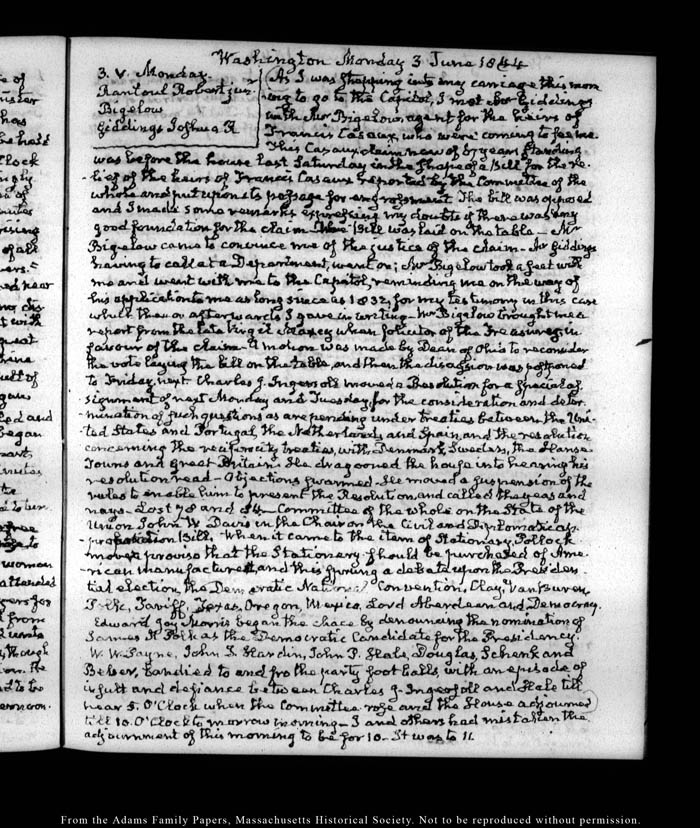 Washington Monday 3 June 1844
3. V. Monday.
Rantoul Robert jun.
Bigelow
Giddings Joshua R
As I was stepping into my carriage this morn
ing to go to the Capitol, I met Mr Giddings
with Mr Bigelow, agent for the heirs of
Francis Cazeaux, who were coming to see me.
This Cazeaux claim now of 57 years standing
was before the house last Saturday in the shape of a Bill for the re-
lief of the heirs of Francis Cazeaux reported by the Committee of the
whole and put upon its passage for engrossment. The bill was opposed
and I made some remarks expressing my doubts if there was any
good foundation for the claim. The Bill was laid on the table — Mr
Bigelow came to convince me of the justice of the claim — Mr Giddings
having to call at a Department, went on; Mr Bigelow took a seat with
me and went with me to the Capitol, reminding me on the way of
his application to me as long since as 1832, for my testimony in this case
which then or afterwards I gave in writing — Mr Bigelow brought me a
report from the late Virgil Maxcy when Solicitor of the Treasury, in
favour of the claim. A motion was made by Dean of Ohio to reconsider
the vote laying the bill on the table, and then the discussion was postponed
to Friday next. Charles J. Ingersoll moved a Resolution for a special as-
signment of next Monday and Tuesday, for the consideration and deter-
mination of such questions as are pending under treaties between the Uni-
ted States and Portugal, the Netherlands and Spain, and the resolution
concerning the reciprocity treaties, with Denmark, Sweden, the Hanse
Towns and Great Britain. He dragooned the house into hearing his
resolution read — Objections swarmed. He moved a suspension of the
rules to enable him to present the Resolution, and called the yeas and
nays — Lost 78 and 84 — Committee of the whole on the State of the
Union John W. Davis in the Chair on the Civil and Diplomatic ap-
propriation Bill. When it came to the item of Stationary, Pollock
moved a proviso that the Stationary should be purchased of Ame-
rican manufacture, and this sprung a debate upon the Presiden-
tial election, the Democratic National Convention, Clay, Van Buren
Polk, Tariff, Texas, Oregon, Mexico, Lord Aberdeen and Democracy.
Edward Joy Morris began the chace by denouncing the nomination of
James K Polk as the Democratic Candidate for the Presidency.
W. W. Payne, John J. Hardin, John P. Hale, Douglas, Schenk and
Belser, bandied to and fro the party foot balls, with an episode of
insult and defiance between Charles J. Ingersoll and Hale till
near 5. O'Clock when the Committee rose and the House adjourned
till 10. O'Clock to morrow morning — I and others had mistaken the
adjournment of this morning to be for 10 — It was to 11.
From the Adams Family Papers, Massachusetts Historical Society. Not to be reproduced without permission.